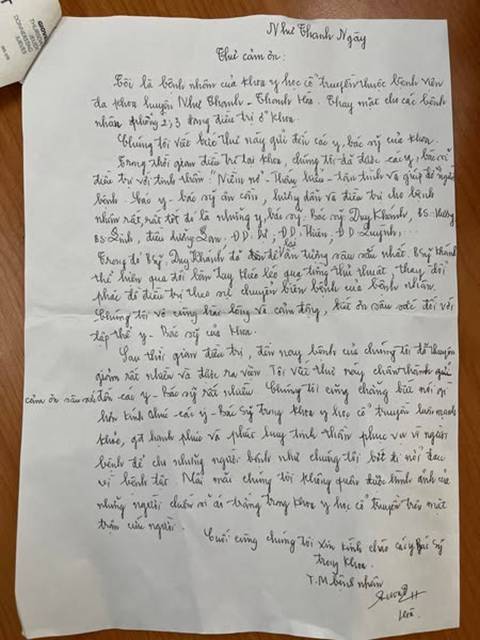 Như Thanh Ngày
Thư cảm ơn:
Tôi là bệnh nhân của khoa y học cổ truyền thuộc bệnh viện
đa khoa huyện Như Thanh - Thanh Hóa. Thay mặt cho các bệnh
nhân phòng 2, 3 đang điều trị ở khoa.
Chúng tôi viết bức thư này gửi đến các y, bác sỹ của khoa.
Trong thời gian điều trị tại khoa, chúng tôi đã được các y, bác sĩ
điều trị với tinh thần: "Niềm nở - Thấu hiểu - tận tình và giúp đỡ người
bệnh. Các y - bác sỹ ân cần, hướng dẫn và điều trị cho bệnh
nhân rất, rất tốt đó là những y, bác sỹ: Bác sỹ Duy Khánh, BS:
BS: Linh, điều dưỡng: ĐD: ĐD Hiền, ĐD Quỳnh;
Trong đó B.sỹ Duy Khánh đã để lại ấn tượng sâu sắc nhất. B.sỹ Khánh
thể hiện qua đôi bàn tay khéo léo qua từng thủ thuật, thay đổi
phác đồ điều trị theo sự chuyển biến bệnh của bệnh nhân.
Chúng tôi vô cùng hài lòng và cảm động, biết ơn sâu sắc đối với
tập thể y - Bác sỹ của khoa.
Sau thời gian điều trị, đến nay bệnh của chúng tôi đã thuyên
giảm rất nhiều và được ra viện. Tôi viết thư này chân thành gửi
cảm ơn sâu sắc đến các y - Bác sỹ rất nhiều. Chúng tôi cũng chẳng biết nói gì
hơn kính chúc các y - Bác sỹ trong khoa y học cổ truyền luôn mạnh
khỏe, hạnh phúc và phát huy tinh thần phục vụ vì người
bệnh để cho những người bệnh như chúng tôi bớt đi nỗi đau
vì bệnh tật. Mãi mãi chúng tôi không quên được hình ảnh của
những người chiến sĩ áo trắng trong khoa y học cổ truyền trên mặt
trận cứu người.
Cuối cùng chúng tôi xin kính chào các y Bác sỹ
trong khoa.
T.M bệnh nhân